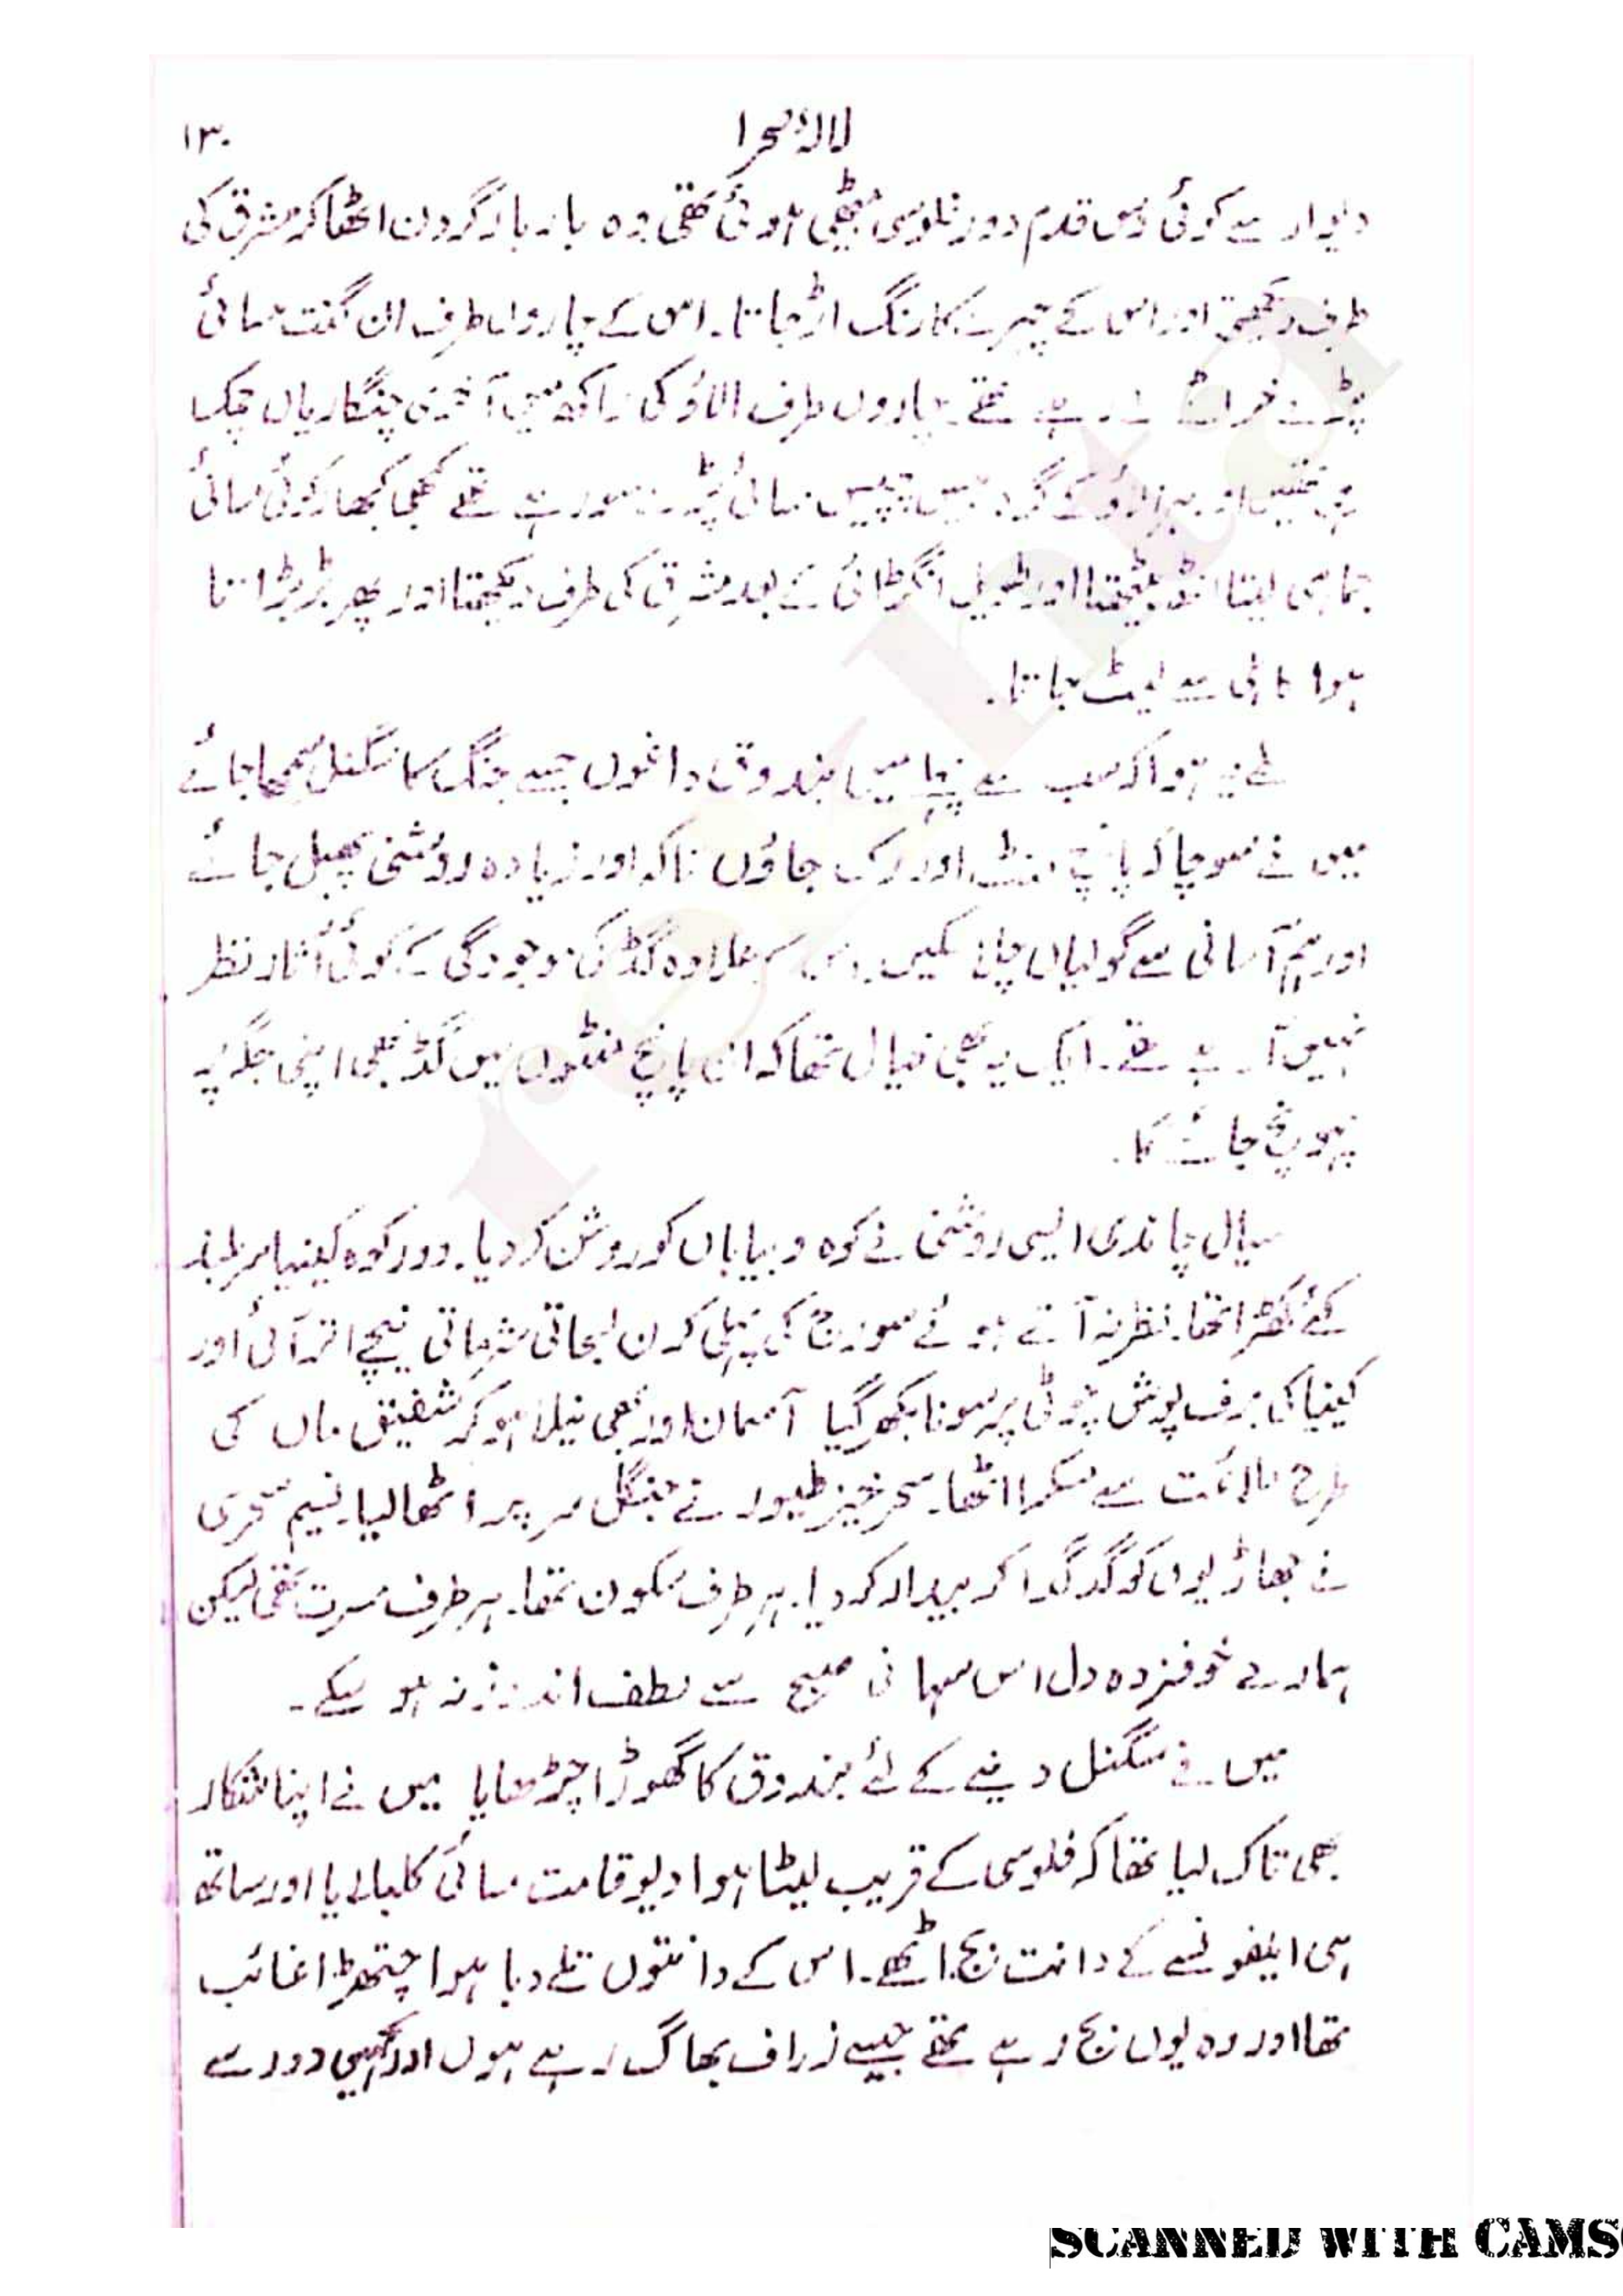 لالۂ صحرا ۱۳۰
دیوار سے کوئی دس قدم دور فلوسی بیٹھی ہوئی تھی وہ بار بار گردن اٹھا کر مشرق کی
طرف دیکھتی اور اس کے چہرے کا رنگ اڑ جاتا۔ اس کے چاروں طرف ان گنت مسائی
پڑے خراٹے لے رہے تھے۔ چاروں طرف الاؤ کی راکھ میں آخری چنگاریاں چمک
رہی تھیں اور ہر الاؤ کے گرد بیس پچیس مسائی پڑے سو رہے تھے کبھی کبھار کوئی مسائی
جماہی لیتا اٹھ بیٹھتا اور طویل انگڑائی کے بعد مشرق کی طرف دیکھتا اور پھر بڑبڑاتا
ہوا کاہلی سے لیٹ جاتا۔
طے یہ ہوا کہ سب سے پہلے میں بندوق داغوں جسے جنگ کا سگنل سمجھا جائے
میں نے سوچا کہ پانچ منٹ اور رک جاؤں تاکہ اور زیادہ روشنی پھیل جائے
اور ہم آسانی سے گولیاں چلا سکیں۔ اس کے علاوہ گڈ کی موجودگی کے کوئی آثار نظر
نہیں آ رہے تھے۔ ایک یہ بھی خیال تھا کہ ان پانچ منٹوں میں گڈ بھی اپنی جگہ پہ
پہونچ جائے گا۔
سیال چاندی ایسی روشنی نے کوہ و بیاباں کو روشن کر دیا۔ دور کوہ کینیا سر بلند
کئے کھڑا تھا۔ نظر نہ آتے ہوئے سورج کی پہلی کرن لجاتی شرماتی نیچے اتر آئی اور
کینیا کی برف پوش چوٹی پر سونا بکھر گیا آسمان اور بھی نیلا ہو کر شفیق ماں کی
طرح ملائمت سے مسکرا اٹھا۔ سحر خیز طیور نے جنگل سر پر اٹھا لیا۔ نسیم سحری
نے جھاڑیوں کو گدگدا کر بیدار کر دیا۔ ہر طرف سکون تھا۔ ہر طرف مسرت تھی لیکن
ہمارے خوفزدہ دل اس سہانی صبح سے لطف اندوز نہ ہو سکے۔
میں نے سگنل دینے کے لئے بندوق کا گھوڑا چڑھایا میں نے اپنا شکار
بھی تاک لیا تھا کہ فلوسی کے قریب لیٹا ہوا دیو قامت مسائی کلبلایا اور ساتھ
ہی ایلفونسے کے دانت بج اٹھے۔ اس کے دانتوں تلے دبا ہوا چتھڑا غائب
تھا اور وہ یوں بج رہے تھے جیسے زراف بھاگ رہے ہوں اور کہیں دور سے
SCANNED WITH CAMS